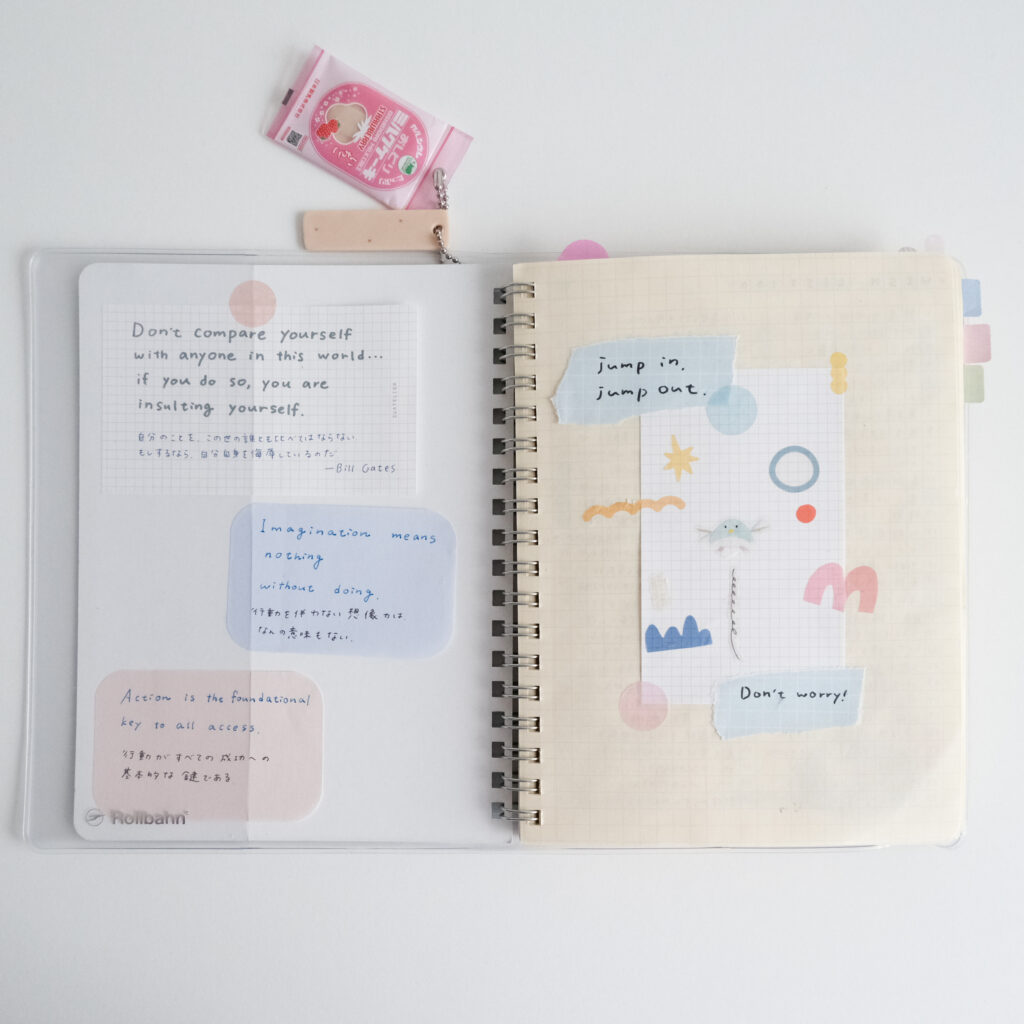 Don't compare yourself
with anyone in this world...
if you do so, you are
insulting yourself.
自分のことを、この世の誰とも比べてはならない
もしするなら、自分自身を侮辱しているのだ
—Bill Gates
Imagination means
nothing
without doing.
行動を伴わない想像力は
なんの意味もない.
Action is the foundational
key to all access.
行動がすべての成功への
基本的な鍵である
Rollbahn
jump in,
jump out.
Don't worry!
STRAWBERRY
おしどり
ミルクケーキ